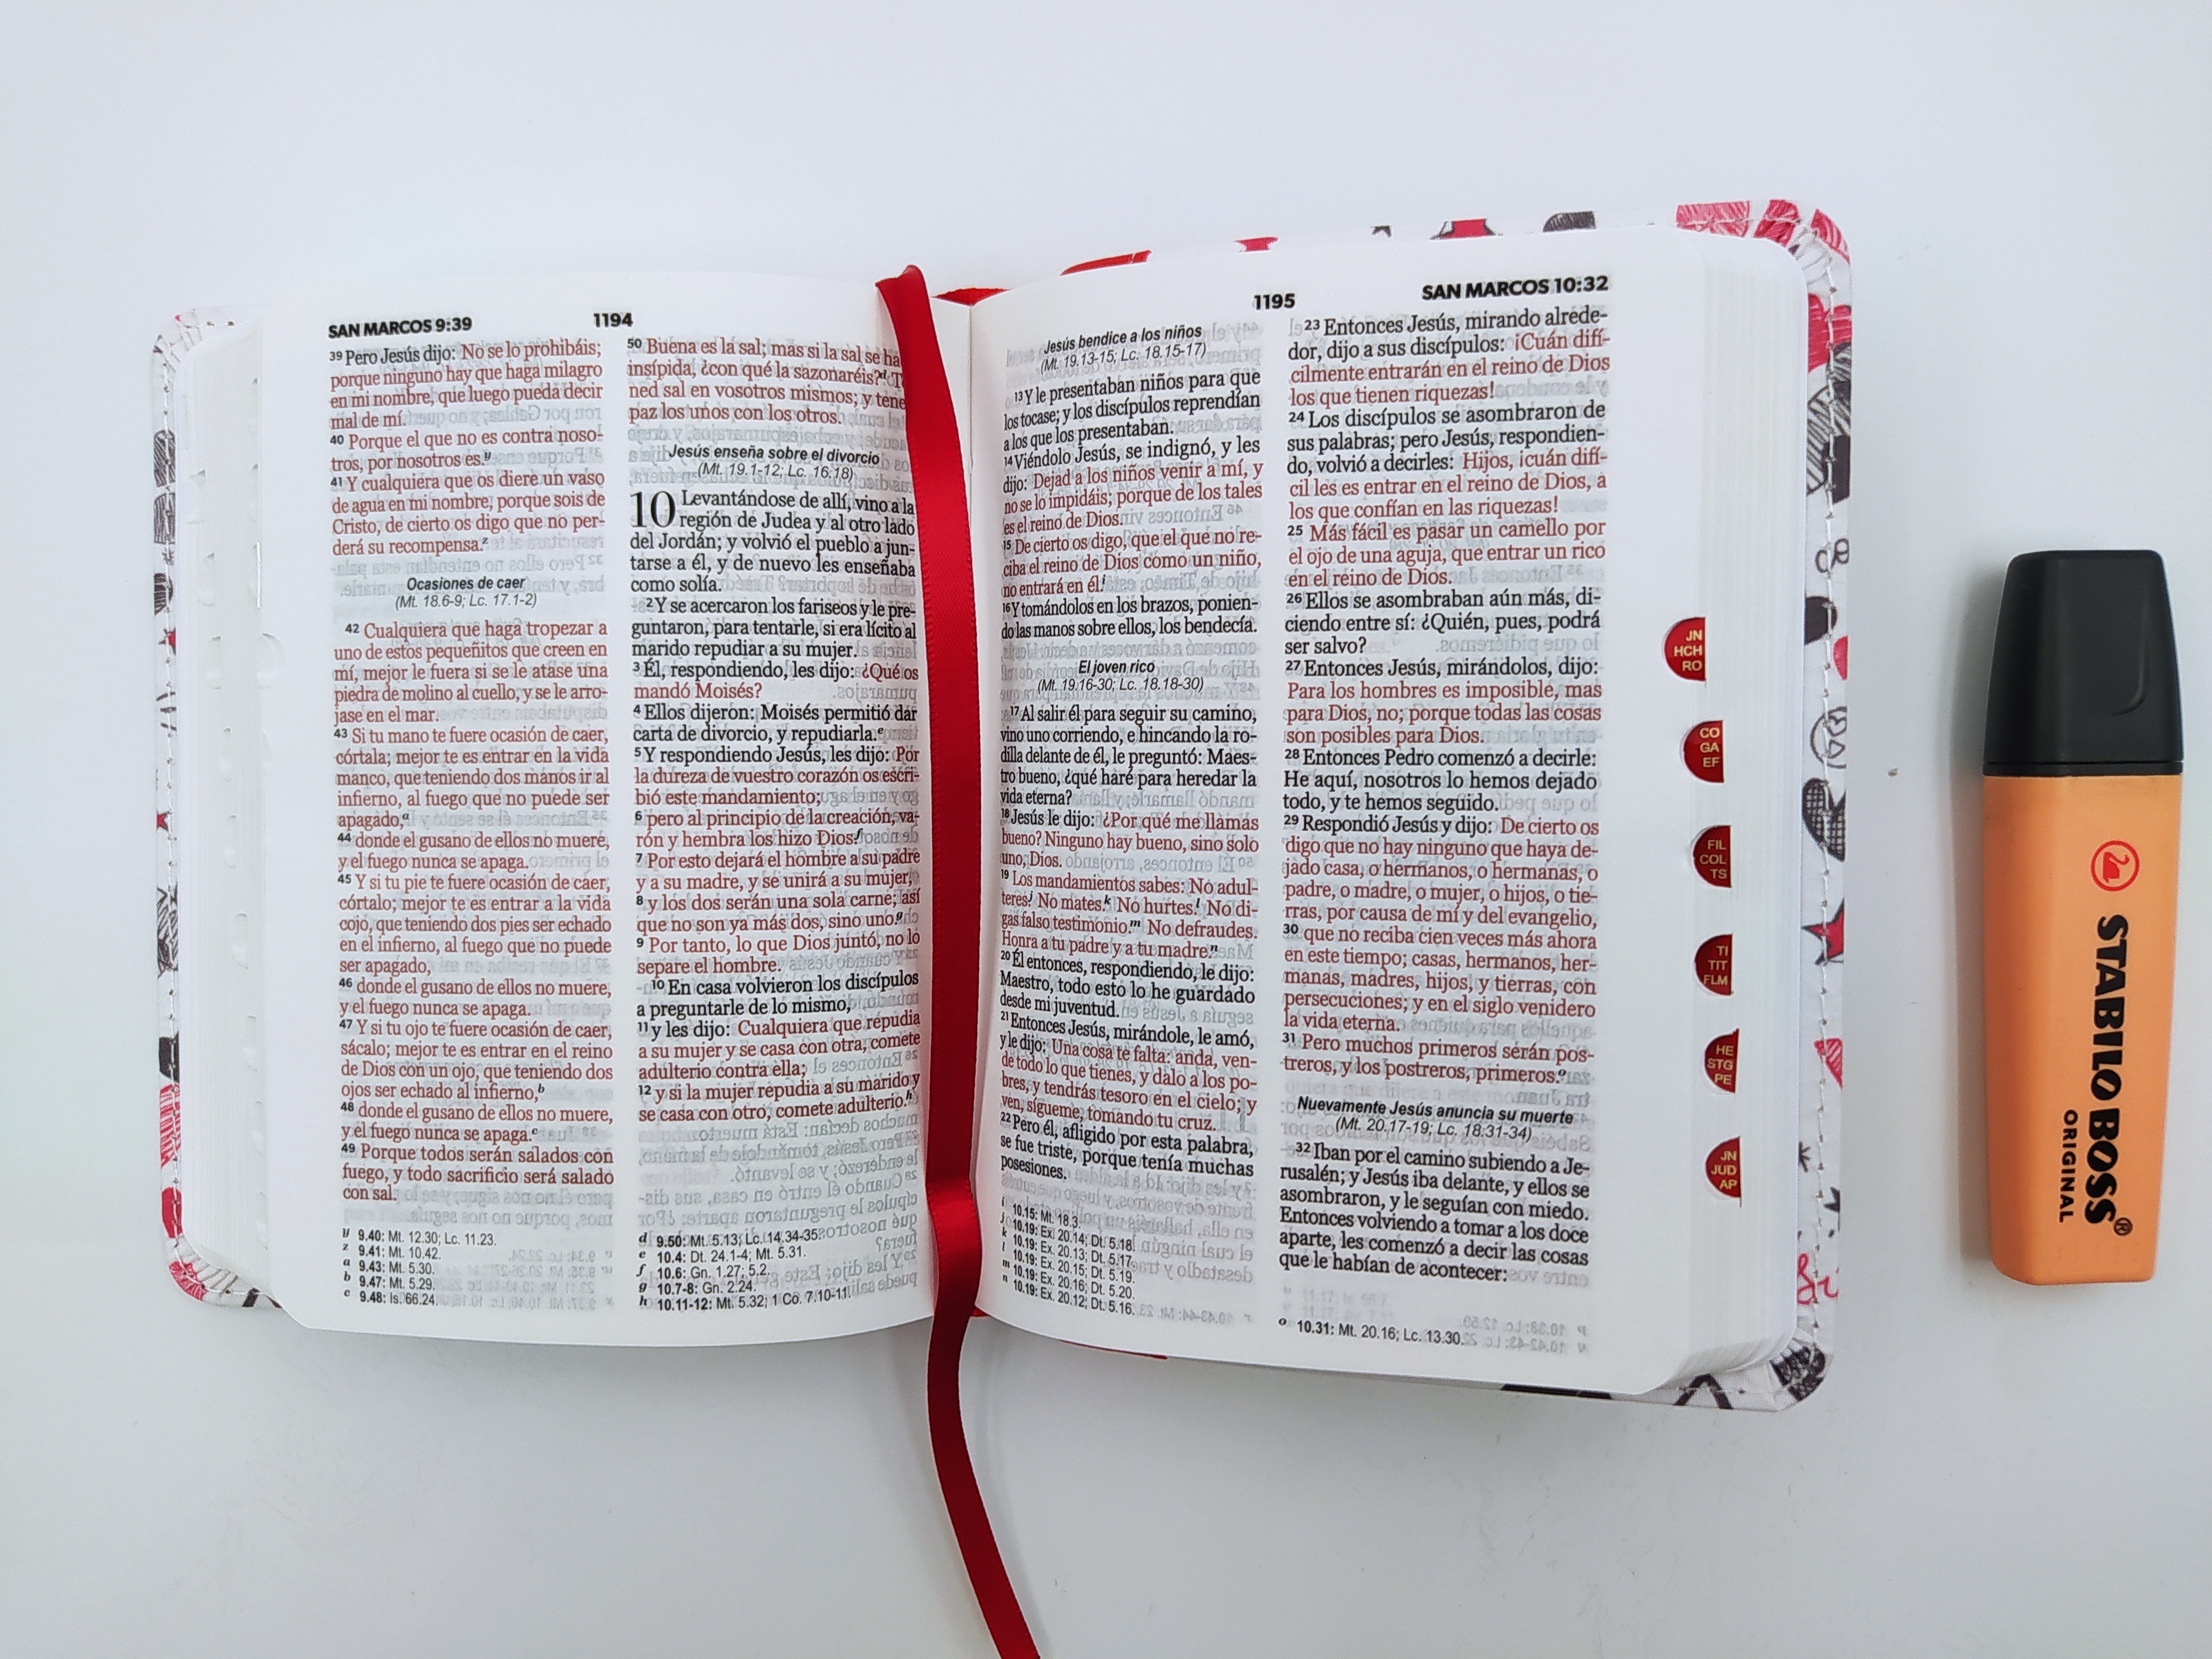 SAN MARCOS 9:39
1194
39 Pero Jesús dijo: No se lo prohibáis;
porque ninguno hay que haga milagro
en mi nombre, que luego pueda decir
mal de mí.
40 Porque el que no es contra noso-
tros, por nosotros es.y
41 Y cualquiera que os diere un vaso
de agua en mi nombre, porque sois de
Cristo, de cierto os digo que no per-
derá su recompensa.z
Ocasiones de caer
(Mt. 18.6-9; Lc. 17.1-2)
42 Cualquiera que haga tropezar a
uno de estos pequeñitos que creen en
mí, mejor le fuera si se le atase una
piedra de molino al cuello, y se le arro-
jase en el mar.
43 Si tu mano te fuere ocasión de caer,
córtala; mejor te es entrar en la vida
manco, que teniendo dos manos ir al
infierno, al fuego que no puede ser
apagado,a
44 donde el gusano de ellos no muere,
y el fuego nunca se apaga.
45 Y si tu pie te fuere ocasión de caer,
córtalo; mejor te es entrar a la vida
cojo, que teniendo dos pies ser echado
en el infierno, al fuego que no puede
ser apagado,
46 donde el gusano de ellos no muere,
y el fuego nunca se apaga.
47 Y si tu ojo te fuere ocasión de caer,
sácalo; mejor te es entrar en el reino
de Dios con un ojo, que teniendo dos
ojos ser echado al infierno,b
48 donde el gusano de ellos no muere,
y el fuego nunca se apaga.c
49 Porque todos serán salados con
fuego, y todo sacrificio será salado
con sal.
y 9.40: Mt. 12.30; Lc. 11.23.
z 9.41: Mt. 10.42.
a 9.43: Mt. 5.30.
b 9.47: Mt. 5.29.
c 9.48: Is. 66.24.
50 Buena es la sal; mas si la sal se ha
insípida, ¿con qué la sazonaréis?d T
ned sal en vosotros mismos; y tene
paz los unos con los otros.
Jesús enseña sobre el divorcio
(Mt. 19.1-12; Lc. 16.18)
10 Levantándose de allí, vino a la
región de Judea y al otro lado
del Jordán; y volvió el pueblo a jun-
tarse a él, y de nuevo les enseñaba
como solía.
2 Y se acercaron los fariseos y le pre-
guntaron, para tentarle, si era lícito al
marido repudiar a su mujer.
3 Él, respondiendo, les dijo: ¿Qué os
mandó Moisés?
4 Ellos dijeron: Moisés permitió dar
carta de divorcio, y repudiarla.e
5 Y respondiendo Jesús, les dijo: Por
la dureza de vuestro corazón os escri-
bió este mandamiento;
6 pero al principio de la creación, va-
rón y hembra los hizo Dios.f
7 Por esto dejará el hombre a su padre
y a su madre, y se unirá a su mujer,
8 y los dos serán una sola carne; así
que no son ya más dos, sino uno.g
9 Por tanto, lo que Dios juntó, no lo
separe el hombre.
10 En casa volvieron los discípulos
a preguntarle de lo mismo,
11 y les dijo: Cualquiera que repudia
a su mujer y se casa con otra, comete
adulterio contra ella;
12 y si la mujer repudia a su marido y
se casa con otro, comete adulterio.h
d 9.50: Mt. 5.13; Lc. 14.34-35.
e 10.4: Dt. 24.1-4; Mt. 5.31.
f 10.6: Gn. 1.27; 5.2.
g 10.7-8: Gn. 2.24.
h 10.11-12: Mt. 5.32; 1 Co. 7.10-11.
1195
SAN MARCOS 10:32
Jesús bendice a los niños
(Mt. 19.13-15; Lc. 18.15-17)
13 Y le presentaban niños para que
los tocase; y los discípulos reprendían
a los que los presentaban.
14 Viéndolo Jesús, se indignó, y les
dijo: Dejad a los niños venir a mí, y
no se lo impidáis; porque de los tales
es el reino de Dios.
15 De cierto os digo, que el que no re-
ciba el reino de Dios como un niño,
no entrará en él.i
16 Y tomándolos en los brazos, ponien-
do las manos sobre ellos, los bendecía.
El joven rico
(Mt. 19.16-30; Lc. 18.18-30)
17 Al salir él para seguir su camino,
vino uno corriendo, e hincando la ro-
dilla delante de él, le preguntó: Maes-
tro bueno, ¿qué haré para heredar la
vida eterna?
18 Jesús le dijo: ¿Por qué me llamas
bueno? Ninguno hay bueno, sino solo
uno, Dios.
19 Los mandamientos sabes: No adul-
teres.j No mates.k No hurtes.l No di-
gas falso testimonio.m No defraudes.
Honra a tu padre y a tu madre.n
20 Él entonces, respondiendo, le dijo:
Maestro, todo esto lo he guardado
desde mi juventud.
21 Entonces Jesús, mirándole, le amó,
y le dijo: Una cosa te falta: anda, ven-
de todo lo que tienes, y dalo a los po-
bres, y tendrás tesoro en el cielo; y
ven, sígueme, tomando tu cruz.
22 Pero él, afligido por esta palabra,
se fue triste, porque tenía muchas
posesiones.
i 10.15: Mt. 18.3.
j 10.19: Ex. 20.14; Dt. 5.18.
k 10.19: Ex. 20.13; Dt. 5.17.
l 10.19: Ex. 20.15; Dt. 5.19.
m 10.19: Ex. 20.16; Dt. 5.20.
n 10.19: Ex. 20.12; Dt. 5.16.
23 Entonces Jesús, mirando alrede-
dor, dijo a sus discípulos: ¡Cuán difí-
cilmente entrarán en el reino de Dios
los que tienen riquezas!
24 Los discípulos se asombraron de
sus palabras; pero Jesús, respondien-
do, volvió a decirles: Hijos, ¡cuán difí-
cil les es entrar en el reino de Dios, a
los que confían en las riquezas!
25 Más fácil es pasar un camello por
el ojo de una aguja, que entrar un rico
en el reino de Dios.
26 Ellos se asombraban aún más, di-
ciendo entre sí: ¿Quién, pues, podrá
ser salvo?
27 Entonces Jesús, mirándolos, dijo:
Para los hombres es imposible, mas
para Dios, no; porque todas las cosas
son posibles para Dios.
28 Entonces Pedro comenzó a decirle:
He aquí, nosotros lo hemos dejado
todo, y te hemos seguido.
29 Respondió Jesús y dijo: De cierto os
digo que no hay ninguno que haya de-
jado casa, o hermanos, o hermanas, o
padre, o madre, o mujer, o hijos, o tie-
rras, por causa de mí y del evangelio,
30 que no reciba cien veces más ahora
en este tiempo; casas, hermanos, her-
manas, madres, hijos, y tierras, con
persecuciones; y en el siglo venidero
la vida eterna.
31 Pero muchos primeros serán pos-
treros, y los postreros, primeros.o
Nuevamente Jesús anuncia su muerte
(Mt. 20.17-19; Lc. 18.31-34)
32 Iban por el camino subiendo a Je-
rusalén; y Jesús iba delante, y ellos se
asombraron, y le seguían con miedo.
Entonces volviendo a tomar a los doce
aparte, les comenzó a decir las cosas
que le habían de acontecer:
o 10.31: Mt. 20.16; Lc. 13.30.
JN
HCH
RO
CO
GA
EF
FIL
COL
TS
TI
TIT
FLM
HE
STG
PE
JN
JUD
AP
STABILO BOSS®
ORIGINAL